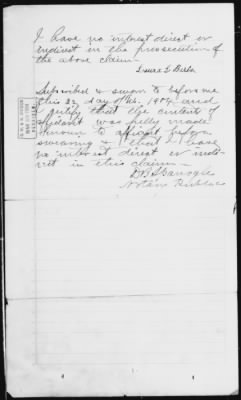 I have no interest direct or
indirect in the prosecution of
the above claim.
Subscribed & sworn to before me
this 22 day of Feb. 1904 and
I certify that the contents of
affidavit was fully made
known to affiant before
swearing & that I have
no interest direct or indi-
rect in this claim.
Notary Public